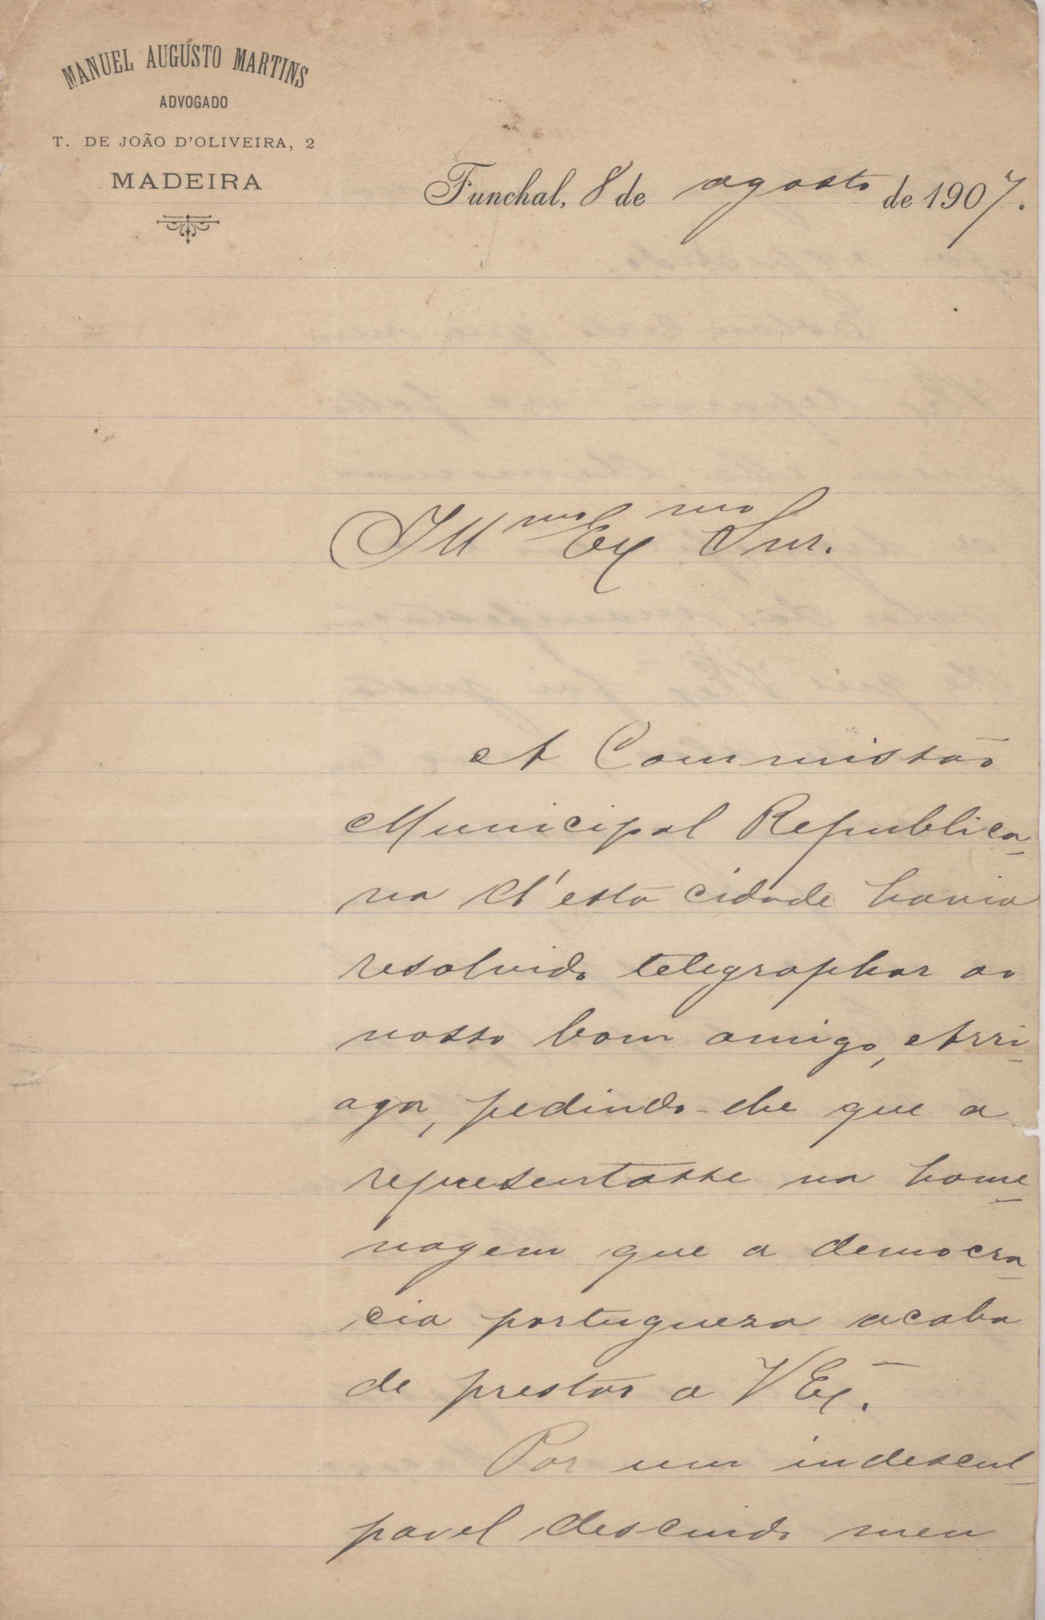 MANUEL AUGUSTO MARTINS
ADVOGADO
T. DE JOÃO D'OLIVEIRA, 2
MADEIRA
Funchal, 8 de agosto de 1907.
Illmo Exmo Snr.
A Commissão
Municipal Republica-
na d'esta cidade havia
resolvido telegraphar ao
nosso bom amigo, Arri-
aga, pedindo-lhe que a
representasse na home-
nagem que a democra-
cia portugueza acaba
de prestar a VEx.
Por um indescul-
pavel descuido meu